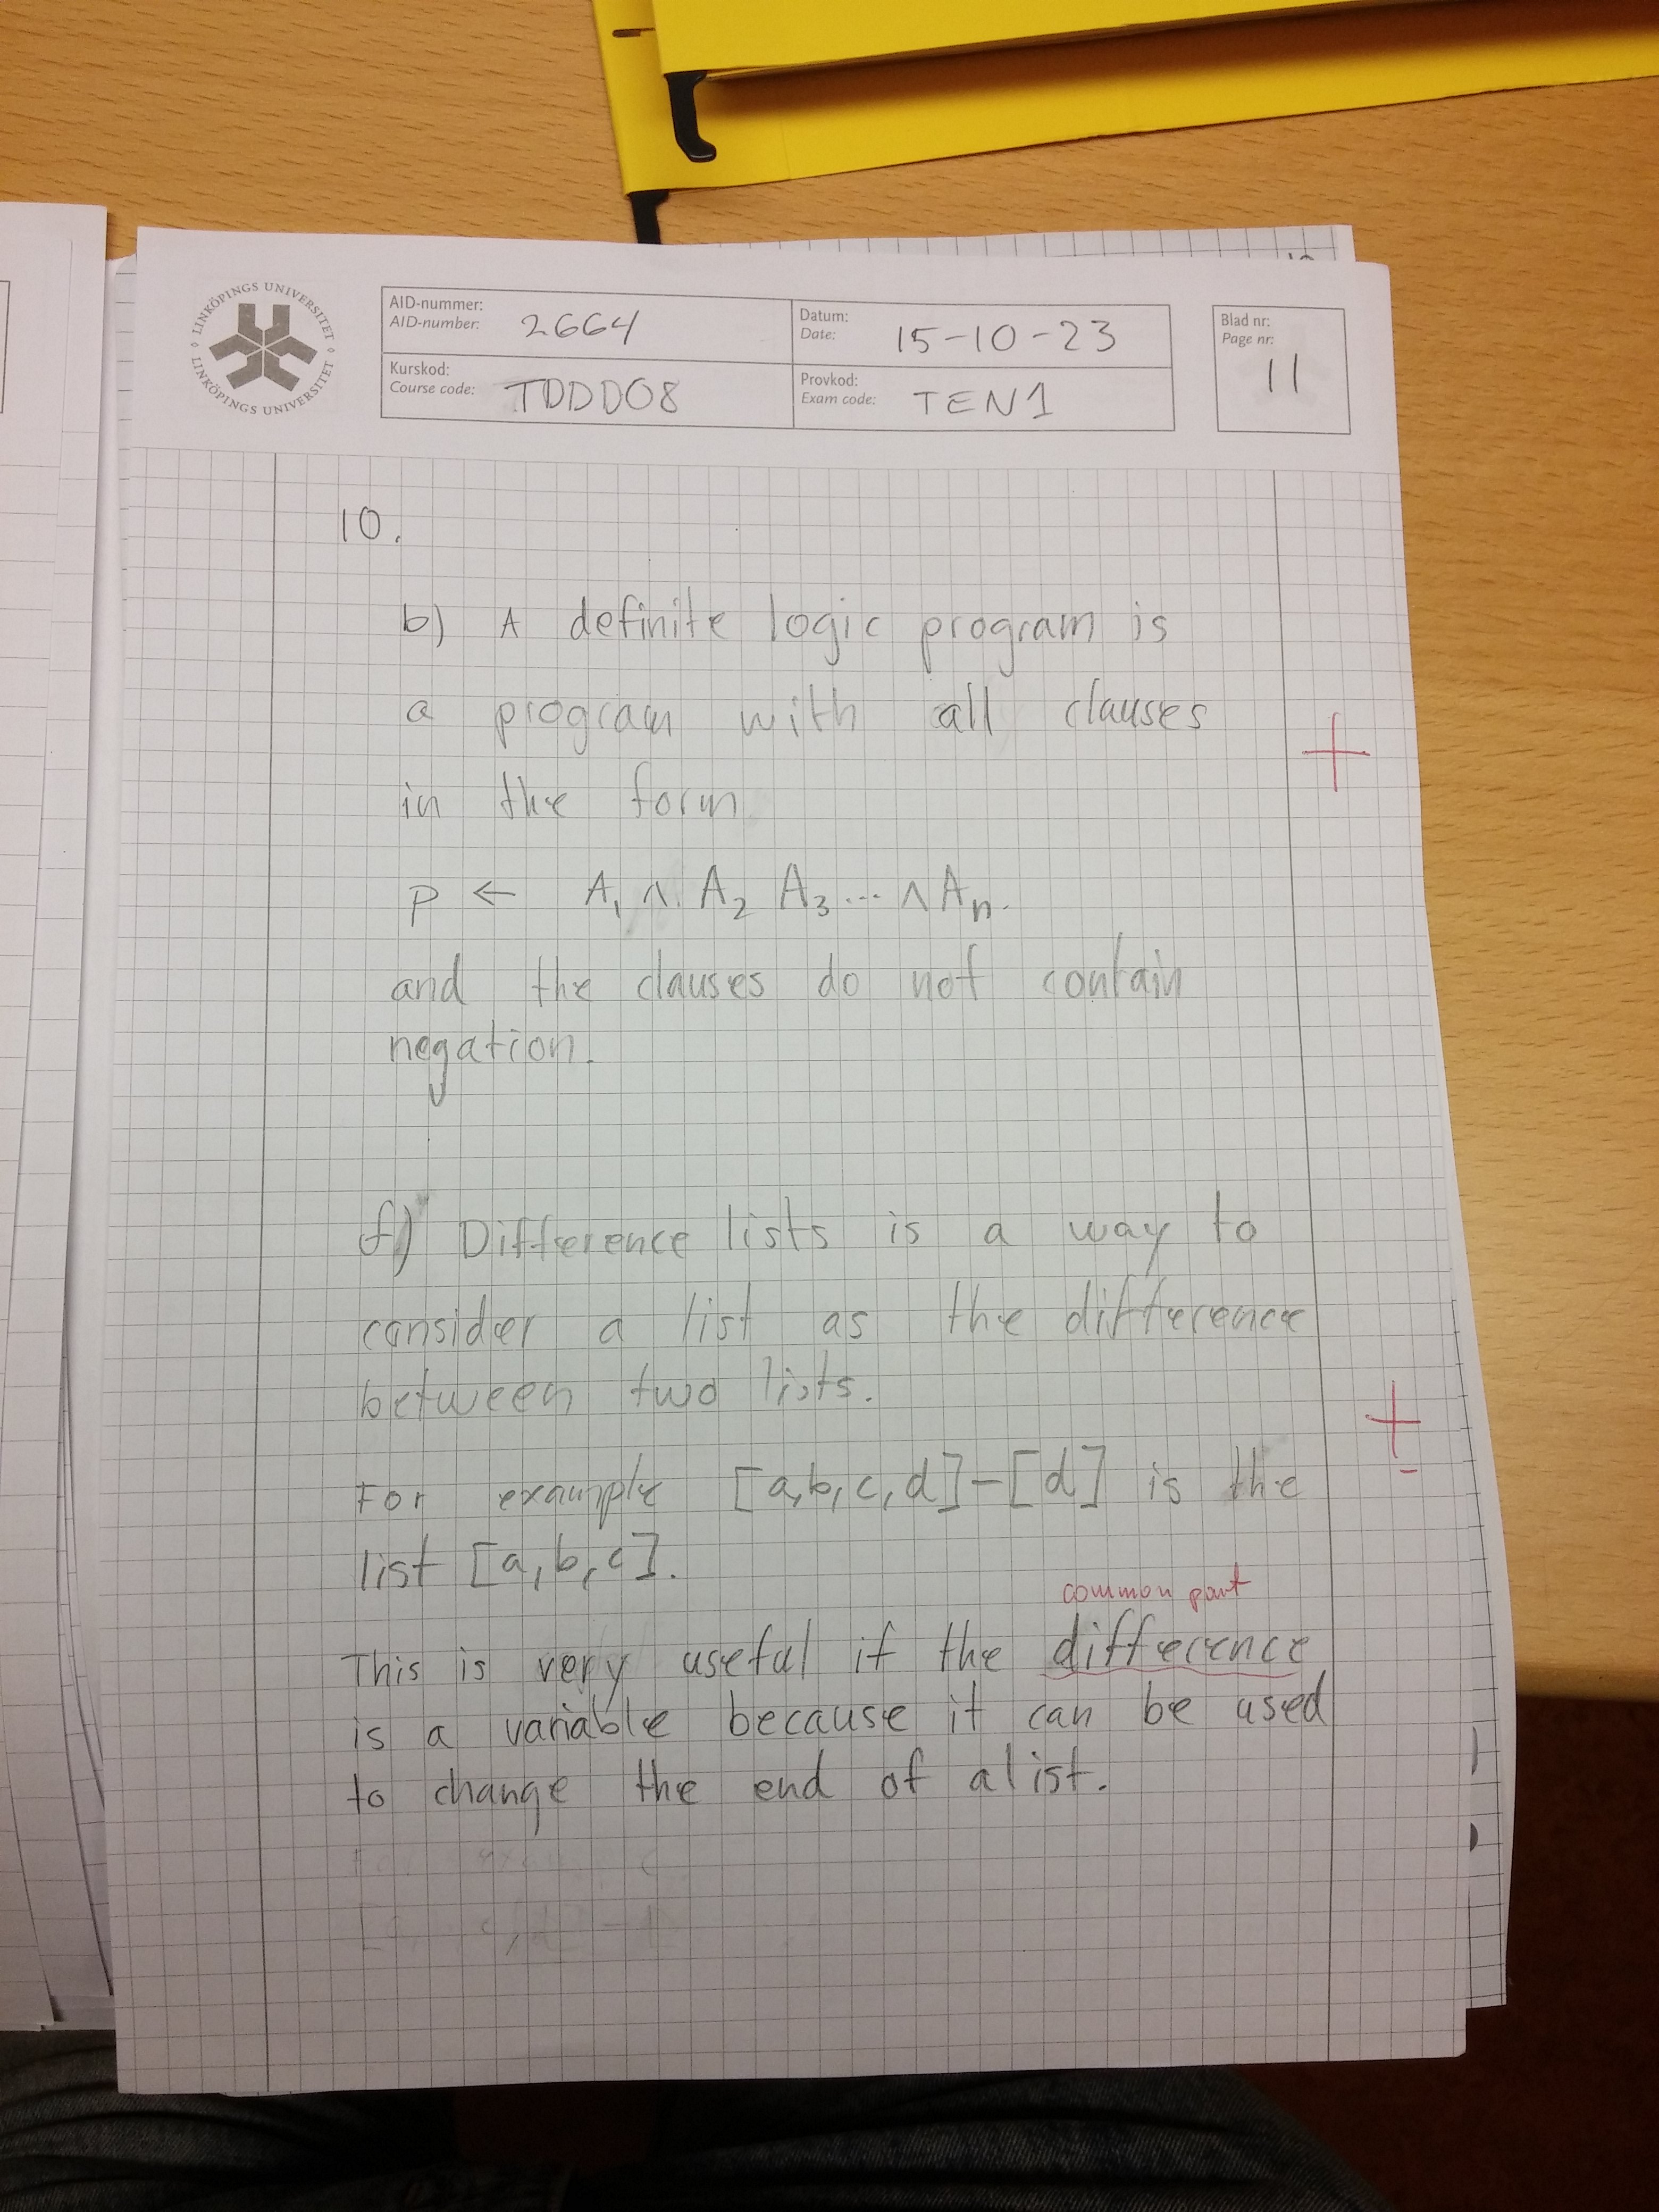 LINKÖPINGS UNIVERSITET
LINKÖPINGS UNIVERSITET
AID-nummer:
AID-number: 2664
Datum:
Date: 15-10-23
Blad nr:
Page nr:
11
Kurskod:
Course code: TDDD08
Provkod:
Exam code: TEN1
10.
b) A definite logic program is
a program with all clauses
in the form
+
p ← A₁ ∧ A₂ A₃... ∧ Aₙ.
and the clauses do not contain
negation.
f) Difference lists is a way to
consider a list as the difference
between two lists.
+
-
For example [a,b,c,d]-[d] is the
list [a,b,c].
common part
This is very useful if the difference
is a variable because it can be used
to change the end of a list.